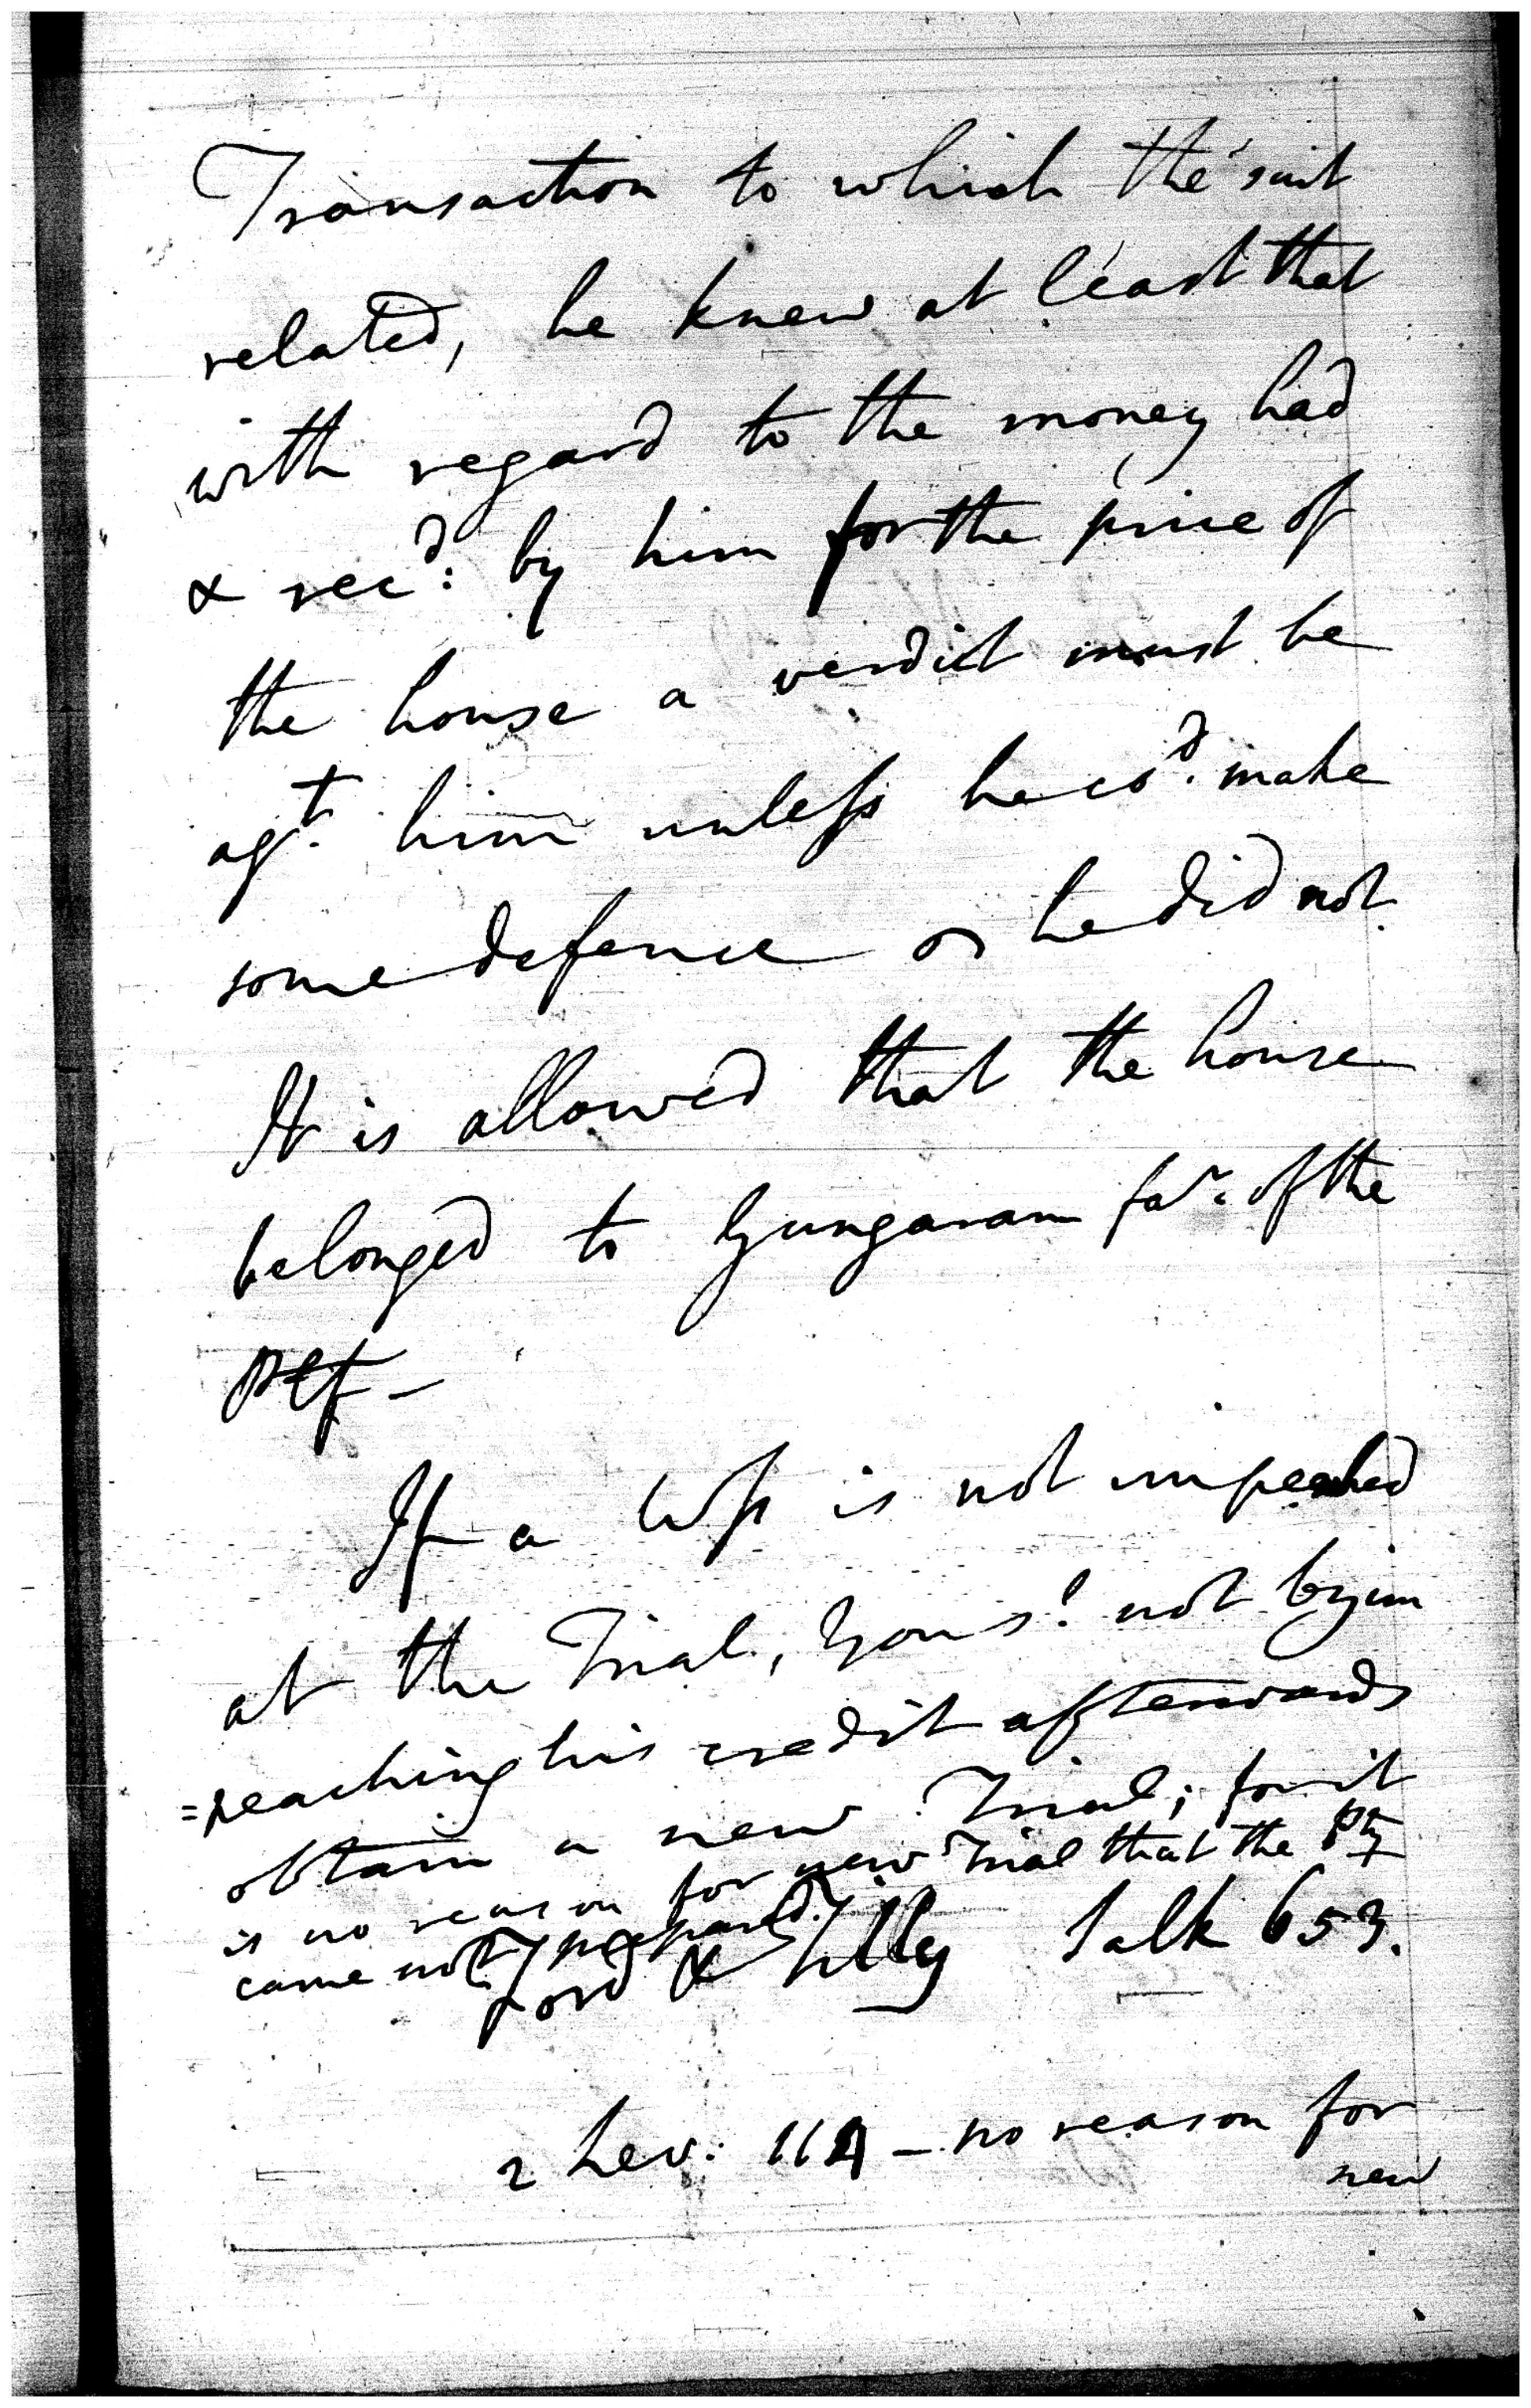 Transaction to which the suit
related, he knew at least that
with regard to the money had
& recd: by him for the price of
the house a verdict must be
agt. him unless he cod. make
some defence & he did not
It is allowed that the house
belonged to Gungaram far. of the
Plf -
If a Wss is not impeached
at the Trial, you sl. not by im
=peaching his credit afterwards
obtain a new Trial; for it
is no reason for new Trial that the pty
came not prepared.
Ford & Tilly Salk 653.
2 Lev: 114 - no reason for
new